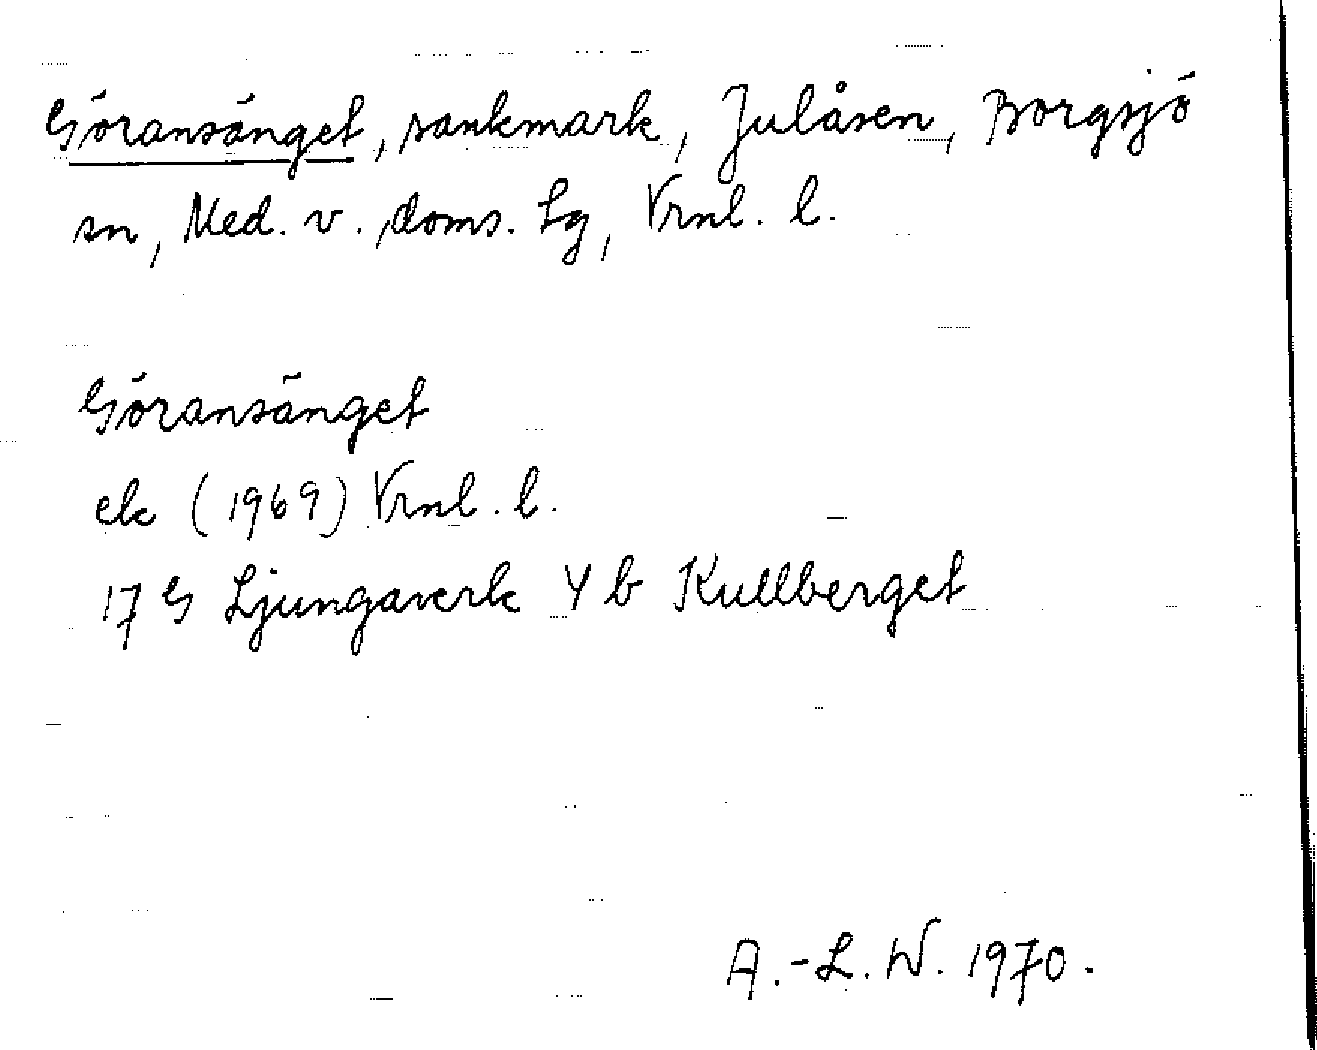 Göransänget, sankmark, Julåsen, Borgsjö
sn, Med. v. doms. lg, Vrnl. l.
Göransänget
ek (1969) Vrnl. l.
17 G Ljungaverk 4 b Kullberget
A.-L. W. 1970.